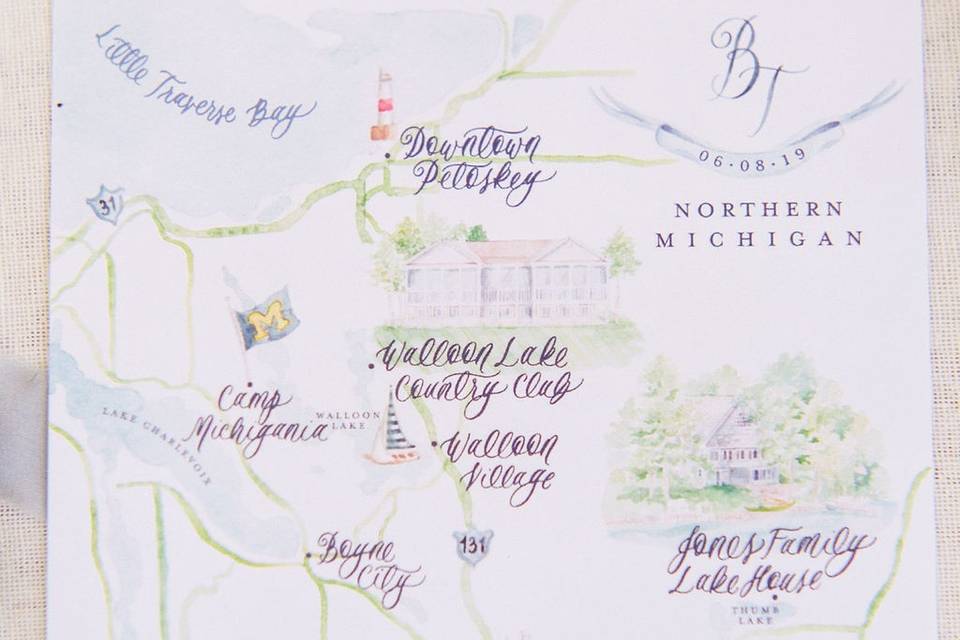 Little Traverse Bay
B
T
06·08·19
NORTHERN
MICHIGAN
Downtown
Petoskey
31
M
Walloon Lake
Country Club
Camp
Michigania
WALLOON
LAKE
LAKE CHARLEVOIX
Walloon
Village
131
Boyne
City
Jones Family
Lake House
THUMB
LAKE